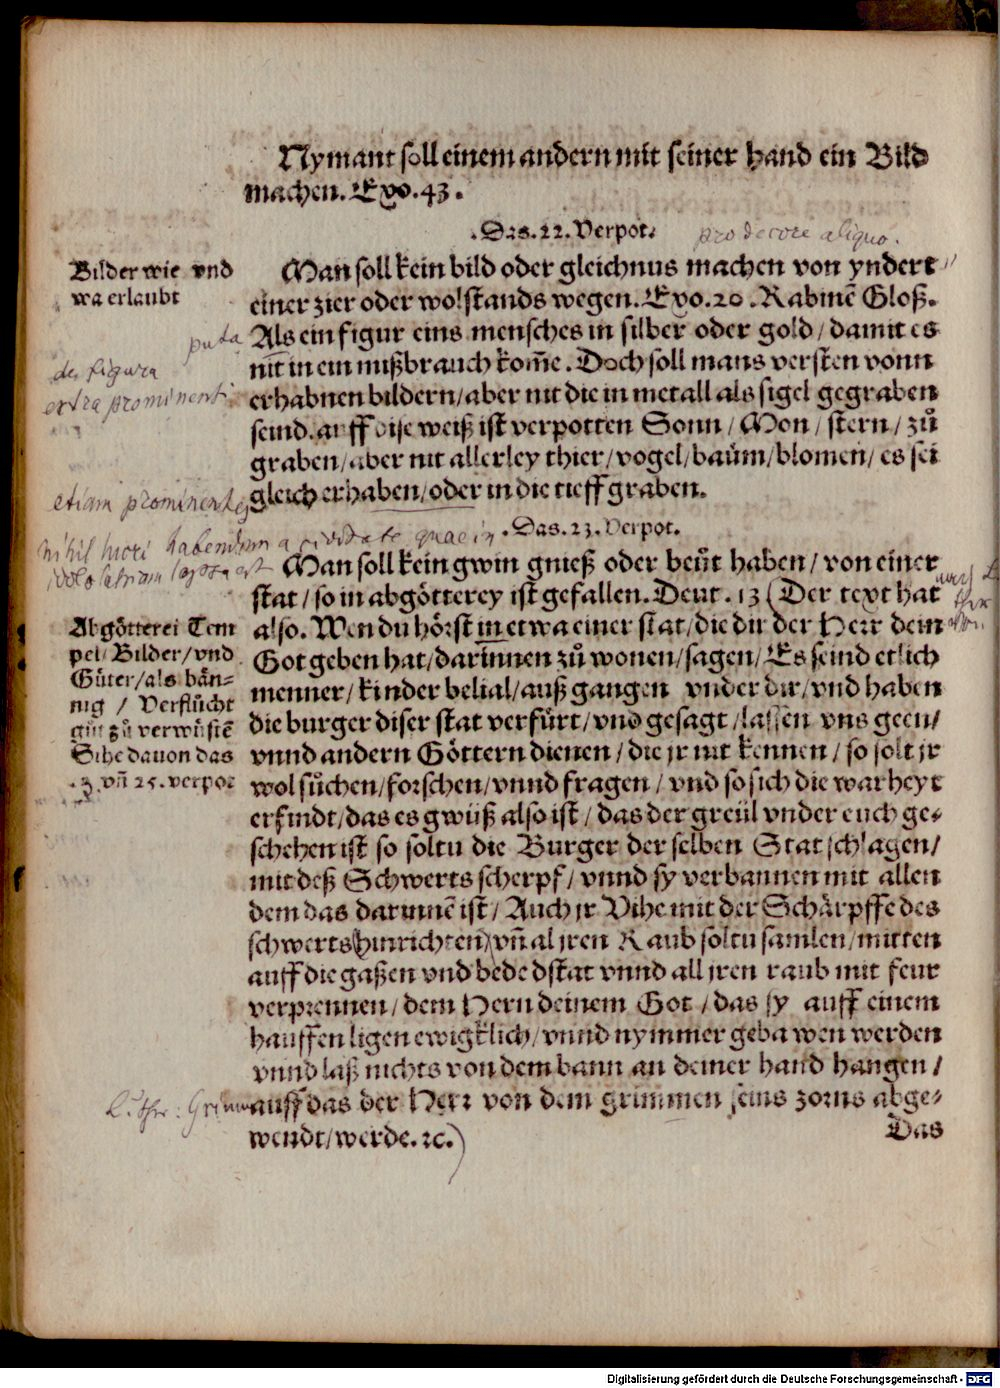 Nymant soll einem andern mit seiner hand ein Bild
machen. Exo. 43.
.Das. 22. Verpot.
pro decore aliquo.
Bilder wie vnd
wa erlaubt
Man soll kein bild oder gleichnus machen von yndert
einer zier oder wolstands wegen. Exo. 20. Rabinē Gloß.
Als ein figur eins mensches in silber oder gold / damit es
nit in ein mißbrauch kom̄e. Doch soll mans versten vonn
erhabnen bildern / aber nit die in metall als sigel gegraben
seind. auff dise weiß ist verpotten Sonn / Mon / stern / zů
graben / aber nit allerley thier / vogel / baům / blomen / es sei
gleich erhaben / oder in die tieff graben.
puta
de figura
extra prominenti
etiam prominentes
.Das. 23. Verpot.
nihil lucri habendum a civitate quae in
idololatriam lapsa est
Man soll kein gwin gnieß oder beüt haben / von einer
stat / so in abgötterey ist gefallen. Deut. 13 (Der text hat
also. Wen du hörst in etwa einer stat / die dir der Herr dein
Got geben hat / darinnen zů wonen / sagen / Es seind etlich
menner / kinder belial / auß gangen vnder dir / vnd haben
die burger diser stat verfürt / vnd gesagt / lassen vns geen /
vnnd andern Göttern dienen / die jr nit kennen / so solt jr
wol sůchen / forschen / vnnd fragen / vnd so sich die warheyt
erfindt / das es gwüß also ist / das der greül vnder euch ge-
schehen ist so soltu die Burger der selben Stat schlagen /
mit deß Schwerts scherpf / vnnd sy verbannen mit allen
dem das darinnē ist / Auch jr Vihe mit der Schärpffe des
schwerts (hinrichten) vn̄ al jren Raub soltu samlen / mitten
auff die gaßen vnd bede dstat vnnd all jren raub mit feur
verprennen / dem Hern deinem Got / das sy auff einem
hauffen ligen ewigklich / vnnd nymmer gebawen werden
vnnd laß nichts von dem bann an deiner hand hangen /
auff das der Herr von dem grimmen seins zorns abge-
wendt / werde. ꝛc.)
Abgötterei Tem
pel / Bilder / vnd
Güter / als bän-
nig / Verflücht
gůt zů verwüstē
Sihe dauon das
. 3. vn̄ 25. verpot
Luthr: Grimm
Das
Digitalisierung gefördert durch die Deutsche Forschungsgemeinschaft - DFG